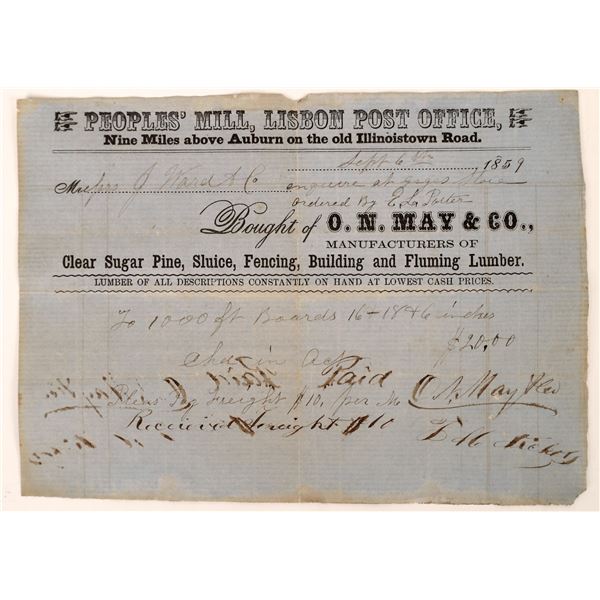 PEOPLES' MILL, LISBON POST OFFICE,
Nine Miles above Auburn on the old Illinoistown Road.
Sept 6th 1859
Messrs J Ward & Co enquire at Store
ordered By E. L. Porter
Bought of O. N. MAY & CO.,
MANUFACTURERS OF
Clear Sugar Pine, Sluice, Fencing, Building and Fluming Lumber.
LUMBER OF ALL DESCRIPTIONS CONSTANTLY ON HAND AT LOWEST CASH PRICES.
To 1000 ft Boards 16 + 18 + 6 inches
$20.00
Chd in Act
Paid
Pleas Pay Freight $10, per M O N. May & Co
Received freight $10